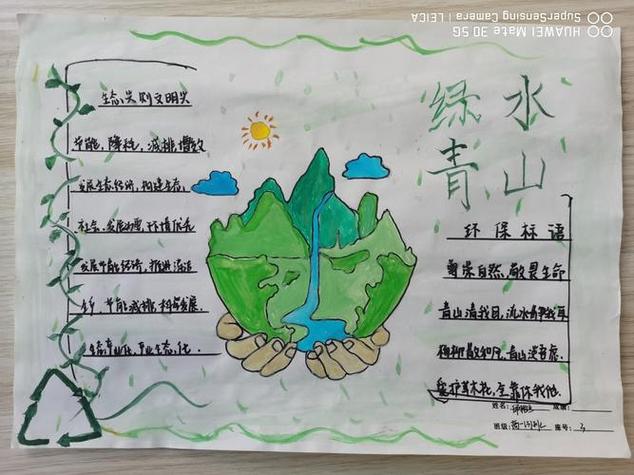 生态兴则文明兴
节能、降耗、减排、增效
发展生态经济,构建生态
社会.发展,环境优先
发展节能经济,推进清洁
生产,节能减排,科学发展.
生态产业化,产业生态化.
绿水
青山
环保标语
尊崇自然,敬畏生命
青山清我目,流水静我耳
爱护草木花,全靠你我他.
姓名:
成绩:
班级:
座号: 3
HUAWEI Mate 30 5G
SuperSensing Camera | LEICA